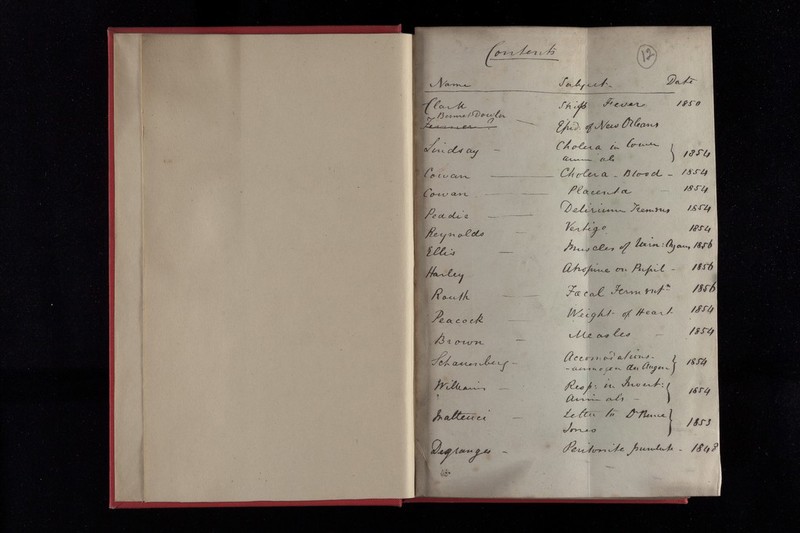 Contents
12
Name Subject Date
Clark Ships Fever 1850
Bennet Dowler Epid. of New Orleans
Lindsay - Cholera in lower
animals } 1854
Cowan Cholera - Blood - 1854
Cowan Placenta 1854
Peddie Delirium Tremens 1854
Reynolds Vertigo 1854
Ellis Muscles of Urin: Organs 1856
Harley Atropine on Pupil - 1856
Routh Fœcal Ferment 1856
Peacock Weight of Heart 1854
Brown Measles 1854
1854
Williams Resp: in Invert:
Animals - } 1854
Matteucci Letter to Dr Bence
Jones } 1853
Degranges - Peritonite purulente - 1848